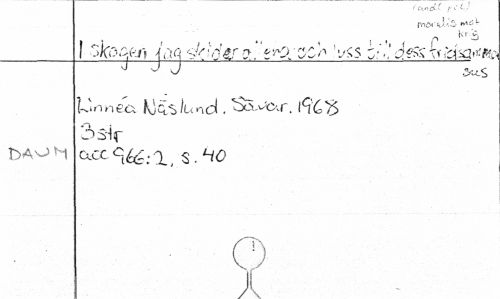 moralis mot
krig
I skogen jag skider allena och lyss till dess fridsamma
sus
Linnéa Näslund. Sävar. 1968
3 str
DAUM acc 966:2, s. 40
!